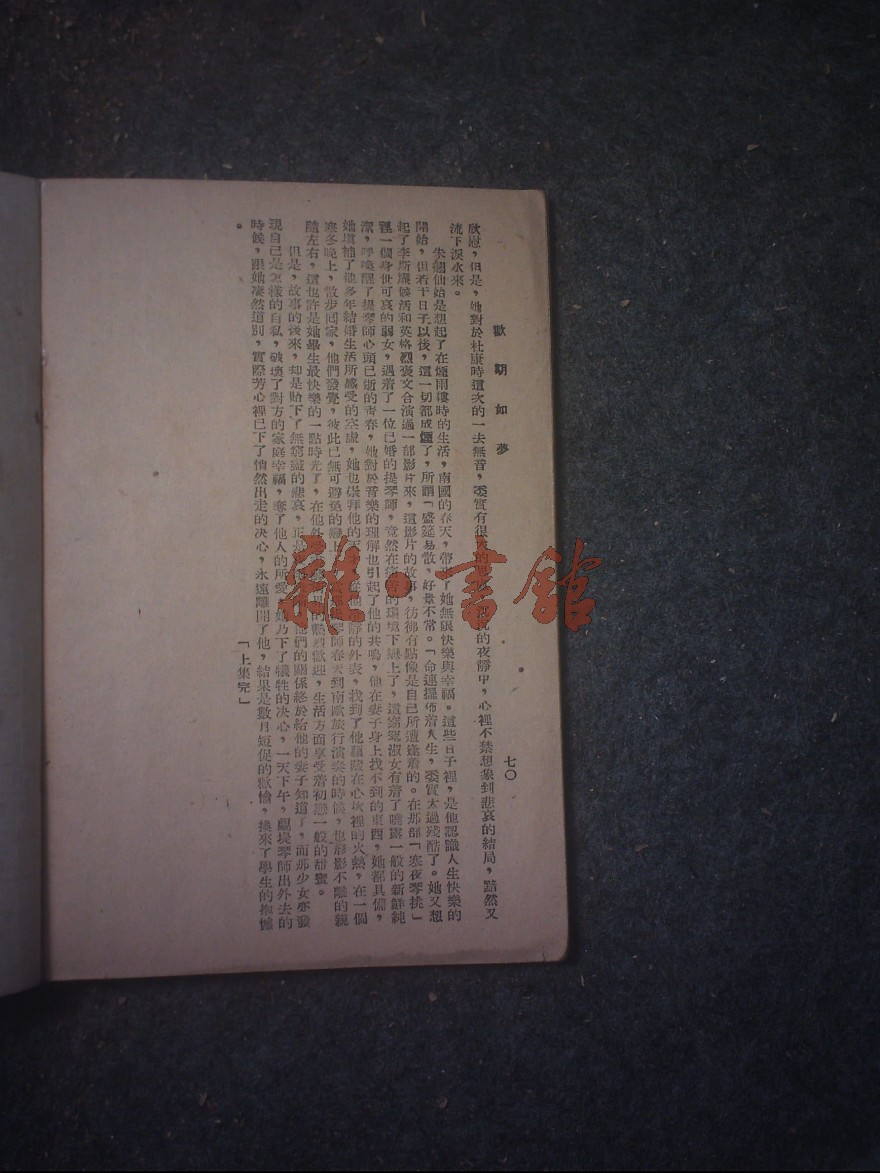 歡期如夢
七〇
欣慰，但是，她對於杜康時這次的一去無音，委實有很的夜靜中，心裡不禁想象到悲哀的結局，黯然又
流下淚水來。
朱翹仙始是想起了在煙雨樓時的生活，南國的春天，帶她無限快樂與幸福。這些日子裡，是他認識人生快樂的
開始，但若干日子以後，這一切都成煙了，所謂「盛筵易散，好景不常。」命運擺佈着人生，委實太過殘酷了。她又想
起了李斯廉候活和英格烈褒文合演過一部影片來，這影片的故事，彷彿有點像是自己所遭逢着的。在那部「寒夜琴挑」
裡一個身世可哀的弱女，遇着了一位已婚的提琴師，竟然在的環境下戀上了，這窈窕淑女有着了噴露一般的新鮮純
潔，呼喚醒了提琴師心頭已逝的青春，她對於音樂的理解也引起了他的共鳴，他在妻子身上找不到的東西，她都具備，
她填補了他多年結婚生活所感受的空虛，她也崇拜他的天靜的外表，找到了他蘊藏在心坎裡的火熱，在一個
寒冬晚上，散步回家，他們發覺，彼此已無可避免的戀上琴師春天到南歐旅行演奏的時候，也形影不離的親
隨左右，這也許是她畢生最快樂的一點時光了，在他熱烈歡迎，生活方面享受着初戀一般的甜蜜。
但是，故事的後來，却是貽下了無窮盡的悲哀，正是他們的關係終於給他的妻子知道了，而那少女亦發
現自己是怎樣的自私，破壞了對方的家庭幸福，奪了他人的所愛，她乃下了犧牲的决心，一天下午，覷堤琴師出外去的
時候，跟她凄然道別，實際芳心裡已下了悄然出走的决心，永遠離開了他，結果是數月短促的歡愉，換來了學生的撫憾
。
「上集完」
雜·書館